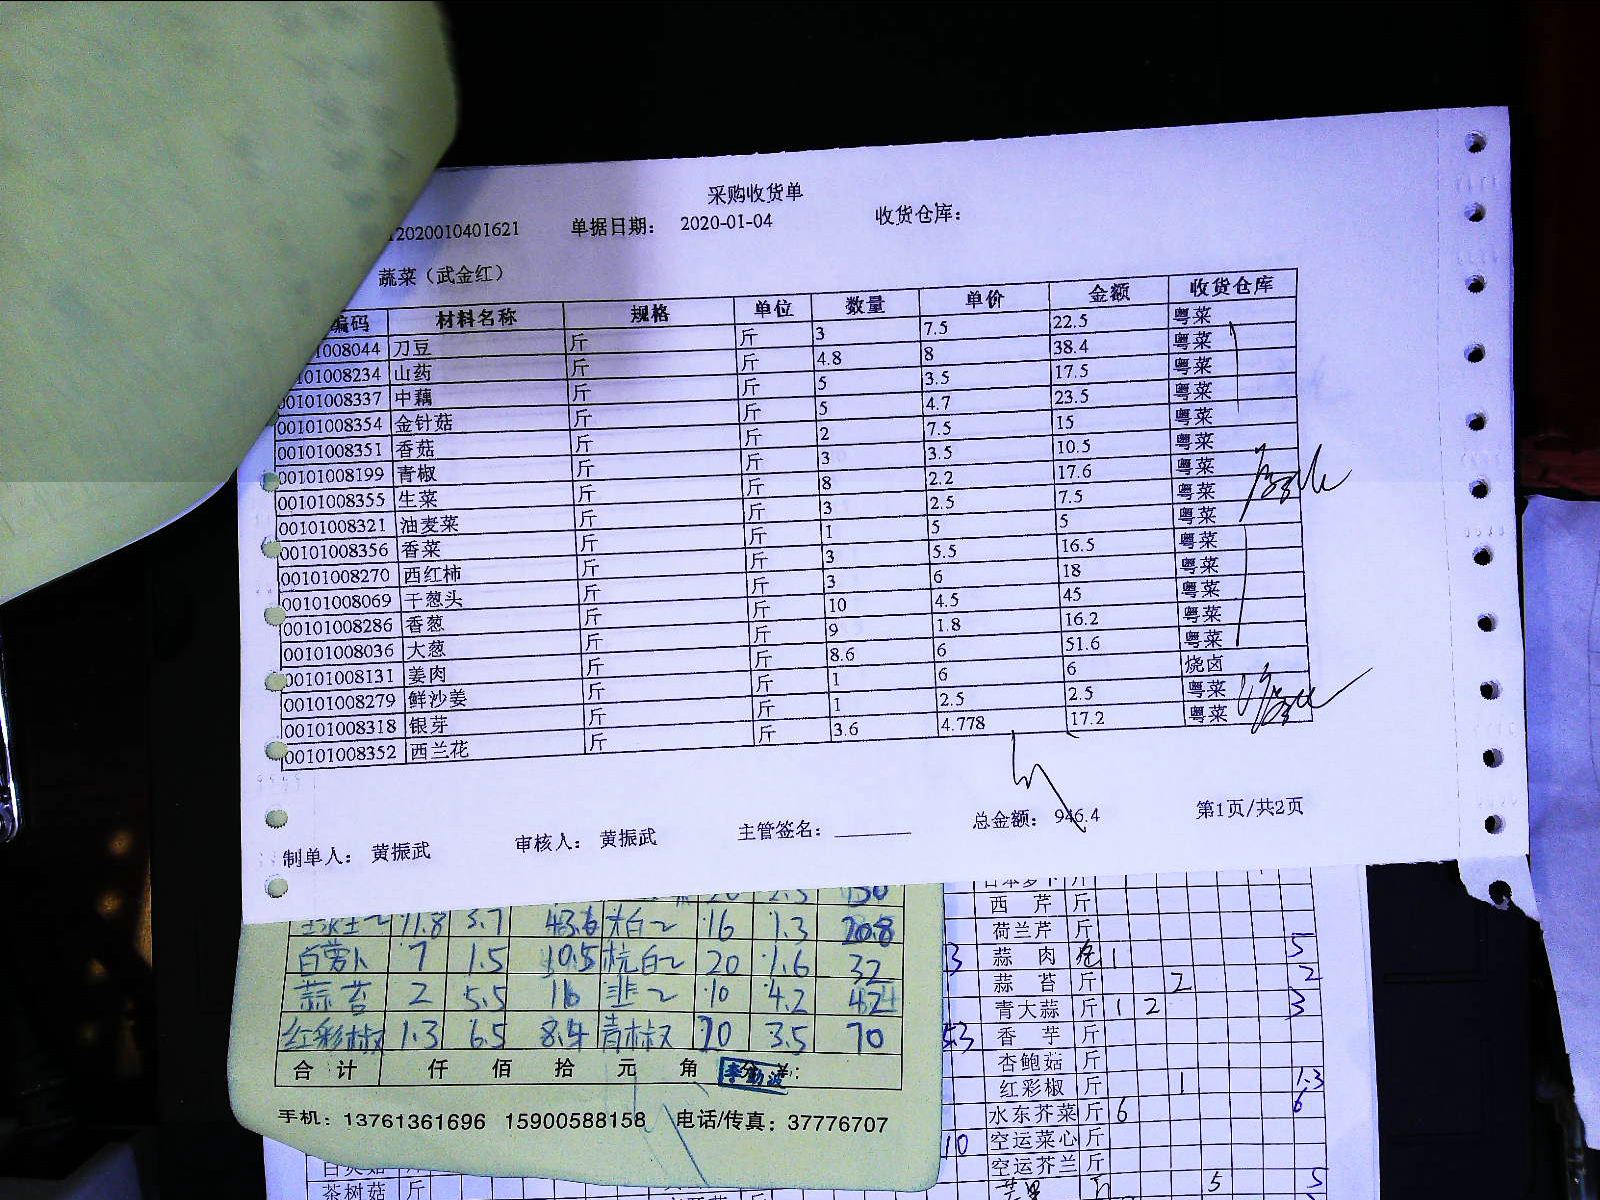 采购收货单
12020010401621 单据日期: 2020-01-04 收货仓库:
蔬菜（武金红）
编码 材料名称 规格 单位 数量 单价 金额 收货仓库
01008044 刀豆 斤 斤 3 7.5 22.5 粤菜
0101008234 山药 斤 斤 4.8 8 38.4 粤菜
00101008337 中藕 斤 斤 5 3.5 17.5 粤菜
00101008354 金针菇 斤 斤 5 4.7 23.5 粤菜
00101008351 香菇 斤 斤 2 7.5 15 粤菜
00101008199 青椒 斤 斤 3 3.5 10.5 粤菜
00101008355 生菜 斤 斤 8 2.2 17.6 粤菜
00101008321 油麦菜 斤 斤 3 2.5 7.5 粤菜
00101008356 香菜 斤 斤 1 5 5 粤菜
00101008270 西红柿 斤 斤 3 5.5 16.5 粤菜
00101008069 干葱头 斤 斤 3 6 18 粤菜
00101008286 香葱 斤 斤 10 4.5 45 粤菜
00101008036 大葱 斤 斤 9 1.8 16.2 粤菜
00101008131 姜肉 斤 斤 8.6 6 51.6 粤菜
00101008279 鲜沙姜 斤 斤 1 6 6 烧卤
00101008318 银芽 斤 斤 1 2.5 2.5 粤菜
00101008352 西兰花 斤 斤 3.6 4.778 17.2 粤菜
制单人: 黄振武 审核人: 黄振武 主管签名: 总金额: 946.4 第1页/共2页
11.8 3.7 43.6 16 1.3 20.8
白萝卜 7 1.5 10.5 20 1.6 32
蒜苔 2 5.5 10 4.2
红彩椒 1.3 6.5 8.4 青椒 20 3.5 70
合计 仟 佰 拾 元 角
手机: 13761361696 15900588158 电话/传真: 37776707
西芹 斤
荷兰芹 斤
蒜肉 1 5
蒜苔 斤 2 2
青大蒜 斤 1 2 3
香芋 斤
杏鲍菇 斤
红彩椒 斤 1 1.3
水东芥菜 斤 6 6
10 空运菜心 斤
空运芥兰 斤
茶树菇 斤 5 5